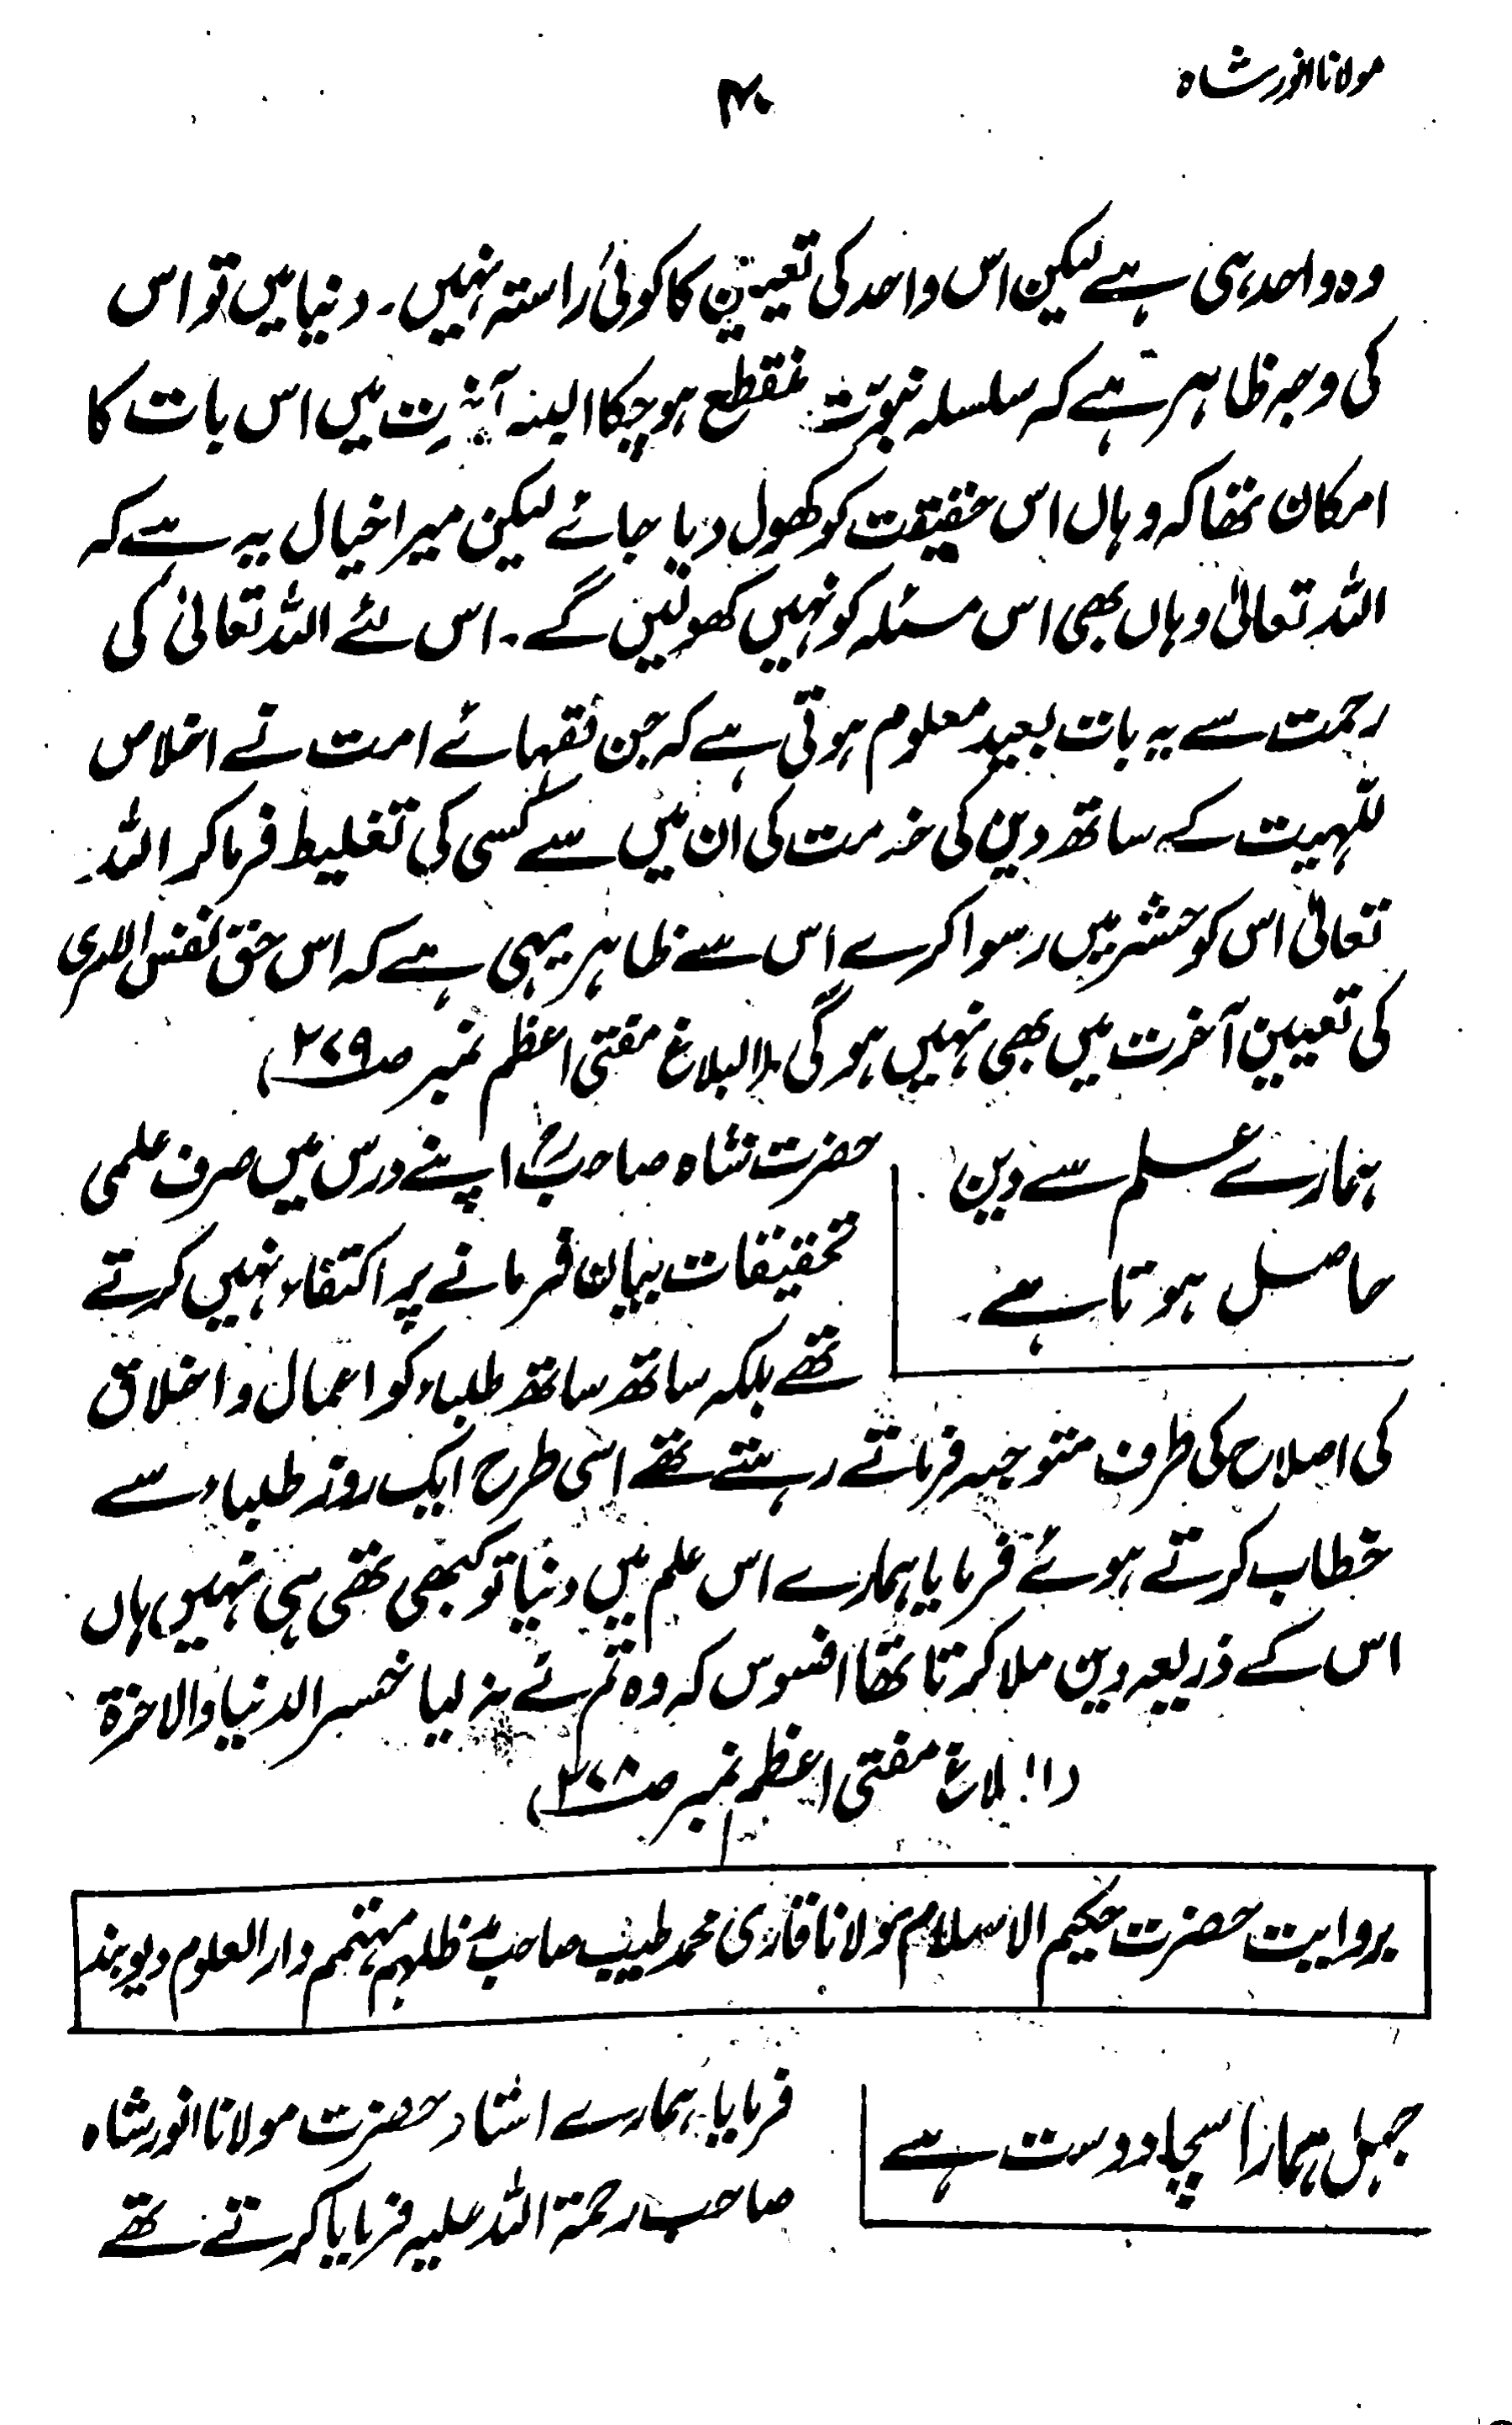 مولانا انور شاہ
۴۰
وہ واحد ہی ہے لیکن اس واحد کی تعیین کا کوئی راستہ نہیں۔ دنیا میں تو اس
کی وجہ ظاہر ہے کہ سلسلہ نبوّت منقطع ہو چکا البتہ آخرت میں اس بات کا
امکان تھا کہ وہاں اس حقیقت کو کھول دیا جائے لیکن میرا خیال یہ ہے کہ
اللہ تعالیٰ وہاں بھی اس مسئلہ کو نہیں کھولیں گے۔ اس لئے اللہ تعالیٰ کی
رحمت سے یہ بات بعید معلوم ہوتی ہے کہ جن فقہائے امت نے اخلاص
للّٰہیت کے ساتھ دین کی خدمت کی ان میں سے کسی کی تغلیط فرما کر اللہ
تعالیٰ اس کو حشر میں رسوا کرے اس سے ظاہر یہی ہے کہ اس حق نفس الامری
کی تعیین آخرت میں بھی نہیں ہو گی (البلاغ مفتی اعظم نمبر صـ ۲۷۹)
ہمارے علم سے دین
حاصل ہوتا ہے۔
حضرت شاہ صاحبؒ اپنے درس میں صرف علمی
تحقیقات بیان فرمانے پر اکتفاء نہیں کرتے
تھے بلکہ ساتھ ساتھ طلباء کو اعمال و اخلاق
کی اصلاح کی طرف متوجہ فرماتے رہتے تھے اسی طرح ایک روز طلباء سے
خطاب کرتے ہوئے فرمایا ہمارے اس علم میں دنیا تو کبھی تھی ہی نہیں ہاں
اس کے ذریعہ دین ملا کرتا تھا افسوس کہ وہ تم نے نہ لیا خسر الدنیا والاخرۃ
(البلاغ مفتی اعظم نمبر صـ ۲۷۸)
بروایت حضرت حکیم الاسلام مولانا قاری محمد طیب صاحب مدظلہم مہتمم دارالعلوم دیوبند
جہل ہمارا سچا دوست ہے
فرمایا، ہمارے استاد حضرت مولانا انور شاہ
صاحب رحمۃ اللہ علیہ فرمایا کرتے تھے